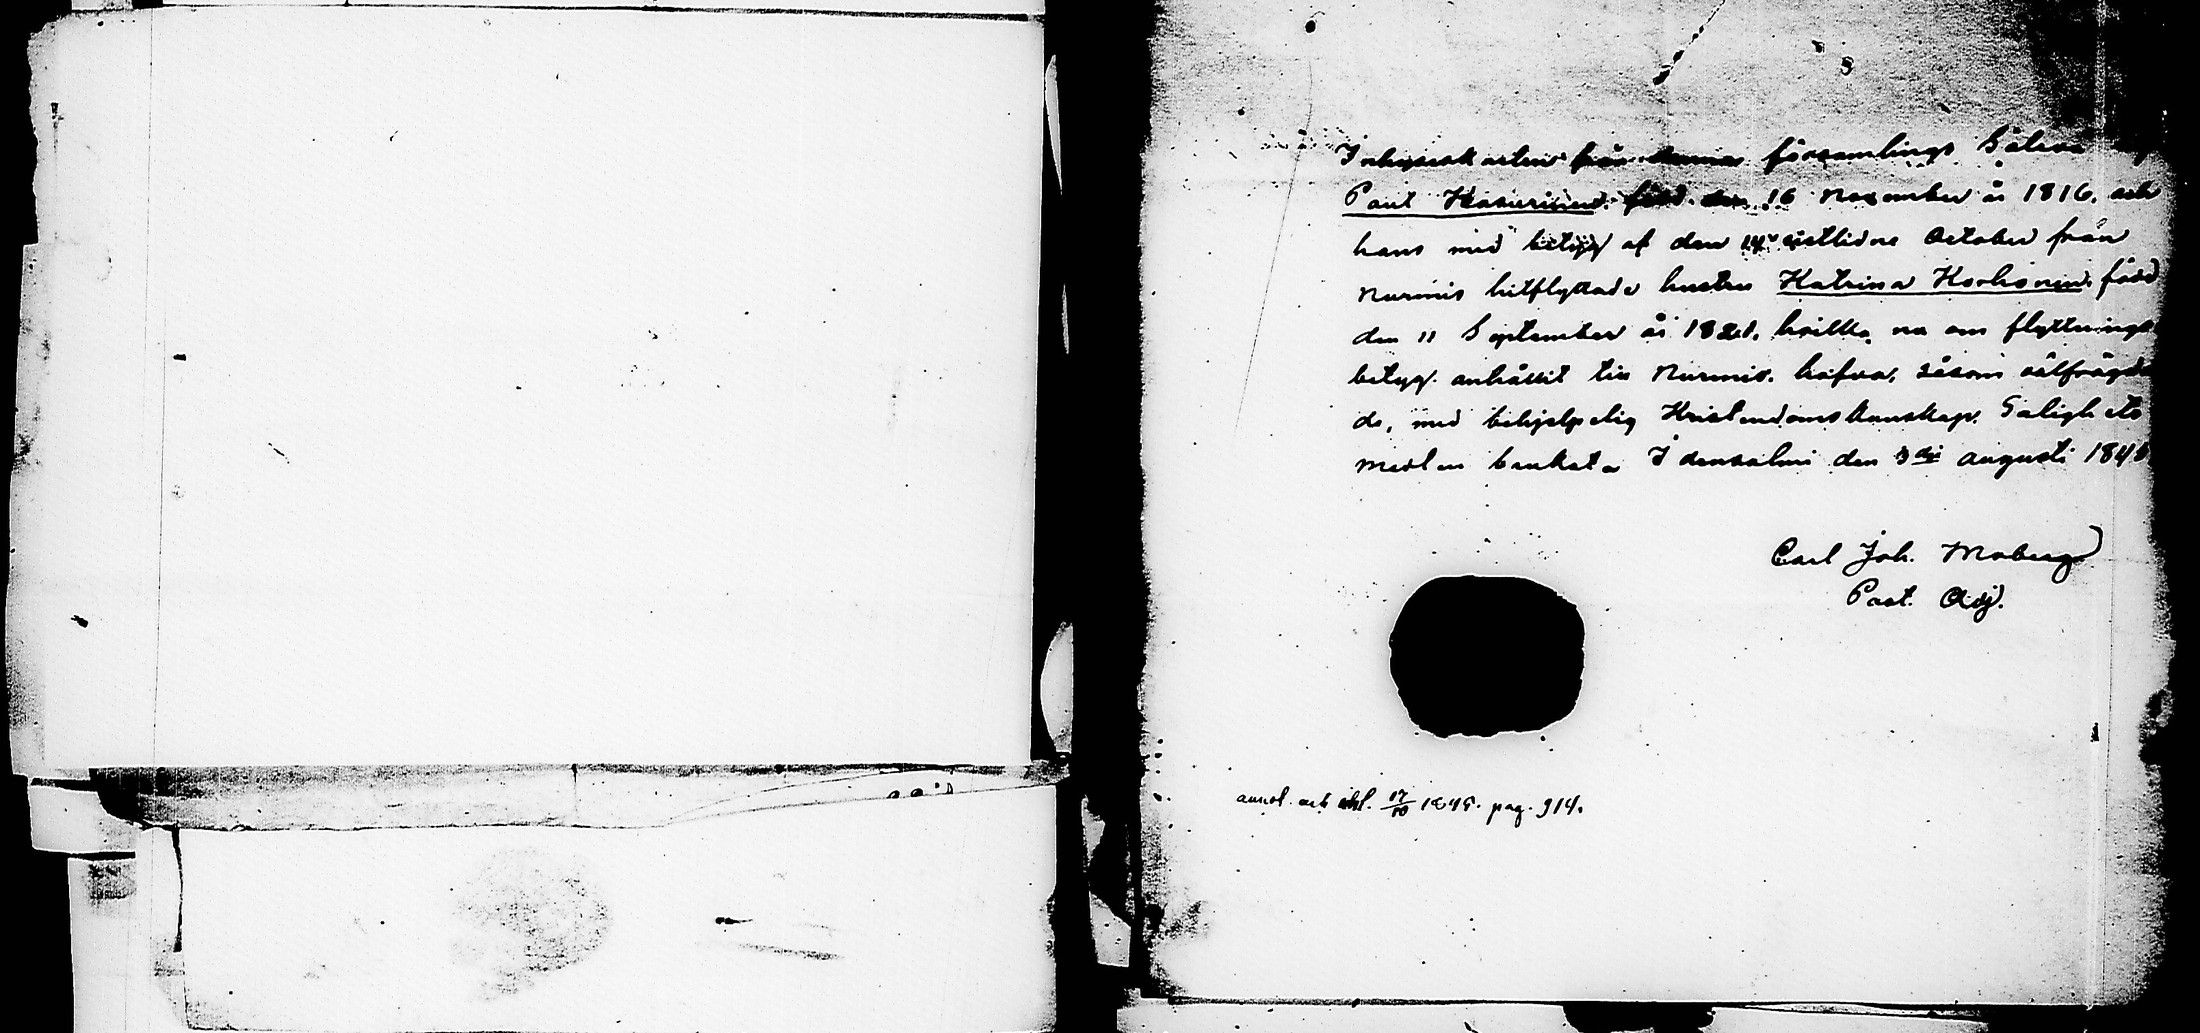 Inhysieskarlen från denna församlings Säleva by
Paul Kasurinen, född den 16 November år 1816, och
hans med betyg af den 14 sistlidne October från
Nurmis hitflyttade hustru Katrina Korhonen, född
den 11 September år 1821, hvilka nu om flyttnings
betyg anhållit till Nurmis, hafva, såsom välfrägda
de, med behjelpelig Kristendomskunskap, Salighets
medlen bruka Idensalmi den 3dje augusti 184
Carl Joh. Moberg
Past. Adj.
annot. och afl. 17/10 1845. pag. 914.